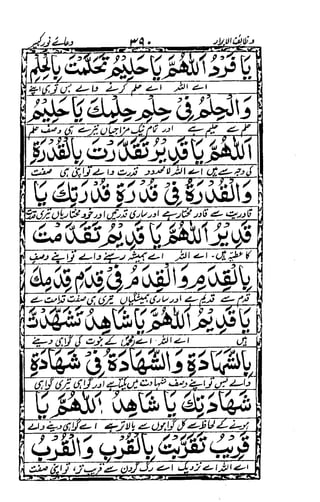 وظائف الابرار ۳۹۰ دعائے نور کبیر
يَا فَرْدُ اَللّٰهُمَّ يَا حَلِيْمُ تَحَلَّمْتَ بِالْحِلْمِ
اے اللہ اے حلم کرنے والے بس تو ہی اپنے
وَالْحِلْمُ فِيْ حِلْمِ حِلْمِكَ يَا حَلِيْمُ
حلم سے حلیم ہے اور تمام نیک مزاجیاں تیرے ہی وصف حلم
اَللّٰهُمَّ يَا قَدِيْرُ تَقَدَّرْتَ بِالْقُدْرَةِ
کی وجہ سے ہیں اے اللہ لامحدود قدرت والے تو اپنی ہی صفت
وَالْقُدْرَةُ فِيْ قُدْرَةِ قُدْرَتِكَ يَا
قادریت سے قادر مختار ہے اور ساری قدرتیں اور خود مختاریاں تیری قدرت
قَدِيْرُ اَللّٰهُمَّ يَا قَدِيْمُ تَقَدَّمْتَ
کا عطیہ ہیں۔ اے اللہ اے ہمیشہ رہنے والے تو اپنے وصف
بِالْقِدَمِ وَالْقِدَمُ فِيْ قِدَمِ قِدَمِكَ
قدم سے قدیم ہے اور ساری ہمیشگیاں تیری ہی صفت قدامت سے
يَا قَدِيْمُ اَللّٰهُمَّ يَا شَاهِدُ تَشَهَّدْتَ
ہیں اے اللہ اے کے ثبوت کی گواہی دینے
بِالشَّهَادَةِ وَالشَّهَادَةُ فِيْ شَهَادَةِ
والے بس تو اپنے وصف شہادت میں یکتا ہے اور گواہی تیری گواہی
شَهَادَتِكَ يَا شَاهِدُ اَللّٰهُمَّ يَا
ہونے کے لحاظ سے کل گواہوں سے بالاتر ہے اے گواہی دینے والے
قَرِيْبُ تَقَرَّبْتَ بِالْقُرْبِ وَالْقُرْبُ
اے اللہ اے نزدیک اے رگ گردن سے قریب تر، تو اپنی صفت